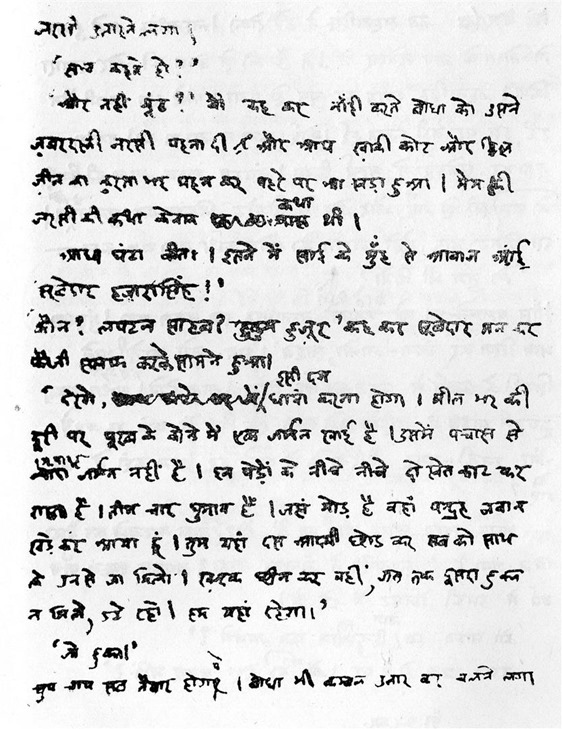 जरसी उतारने लगा।
'सच कहते हो?'
'और नहीं झूठ?' यों कह कर नाँही करते बोधा को उसने
जबरदस्ती जरसी पहना दी और आप खाकी कोट और जीन
जीन का कुरता भर पहन कर पहरे पर आ खड़ा हुआ। मेम की
जरसी की कथा केवल कथा थी।
आधा घंटा बीता। इतने में खाई के मुँह से आवाज आई
'सूबेदार हजारासिंह!'
'कौन? लपटन साहब? हुकुम हुजूर' कह कर सूबेदार तन कर
फौजी सलाम करके सामने हुआ।
'देखो, इसी दम धावा करना होगा। मील भर की
दूरी पर पूरब के कोने में एक जर्मन खाई है। उसमें पचास से
जियादह जर्मन नहीं है। इन पेड़ों के नीचे नीचे दो खेत काट कर
रास्ता है। तीन चार घुमाव हैं। जहां मोड़ है वहां पन्द्रह जवान
खड़े कर आया हूं। तुम यहां दस आदमी छोड़ कर सब को साथ
ले उनसे जा मिलो। खंदक छीन कर वहीं, जब तक दूसरा हुक्म
न मिले, डटे रहो। हम यहां रहेगा।'
'जो हुक्म।'
चुप चाप सब तैयार होगए। बोधा भी कम्बल उतार कर चलने लगा।